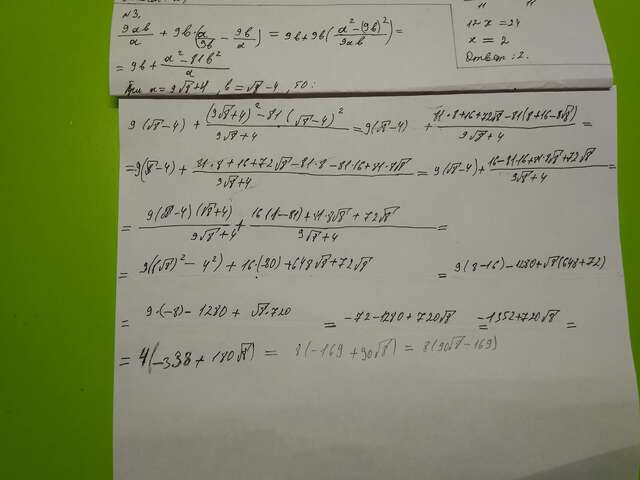 N3,
\frac{9ab}{a} + 9b·(\frac{a}{9b} - \frac{9b}{a}) = 9b+9b(\frac{a^2-(9b)^2}{9ab})=
= 9b+\frac{a^2-81b^2}{a}
При a=9√8+4, b=√8-4, то:
12x=24
x=2
Ответ: 2.
9(√8-4) + \frac{(9√8+4)^2-81(√8-4)^2}{9√8+4} = 9(√8-4) + \frac{81·8+16+72√8-81(8+16-8√8)}{9√8+4} =
=9(√8-4) + \frac{81·8+16+72√8-81·8-81·16+81·8√8}{9√8+4} = 9(√8-4)+\frac{16-81·16+81·8√8+72√8}{9√8+4} =
= \frac{9(√8-4)(√8+4)}{9√8+4} + \frac{16(1-81)+81·8√8+72√8}{9√8+4} =
= 9((√8)^2-4^2)+16·(-80)+648√8+72√8 = 9(8-16)-1280+√8(648+72)
= 9·(-8)-1280+√8·720 = -72-1280+720√8 = -1352+720√8 =
= 4(-338+180√8) = 8(-169+90√8) = 8(90√8-169)